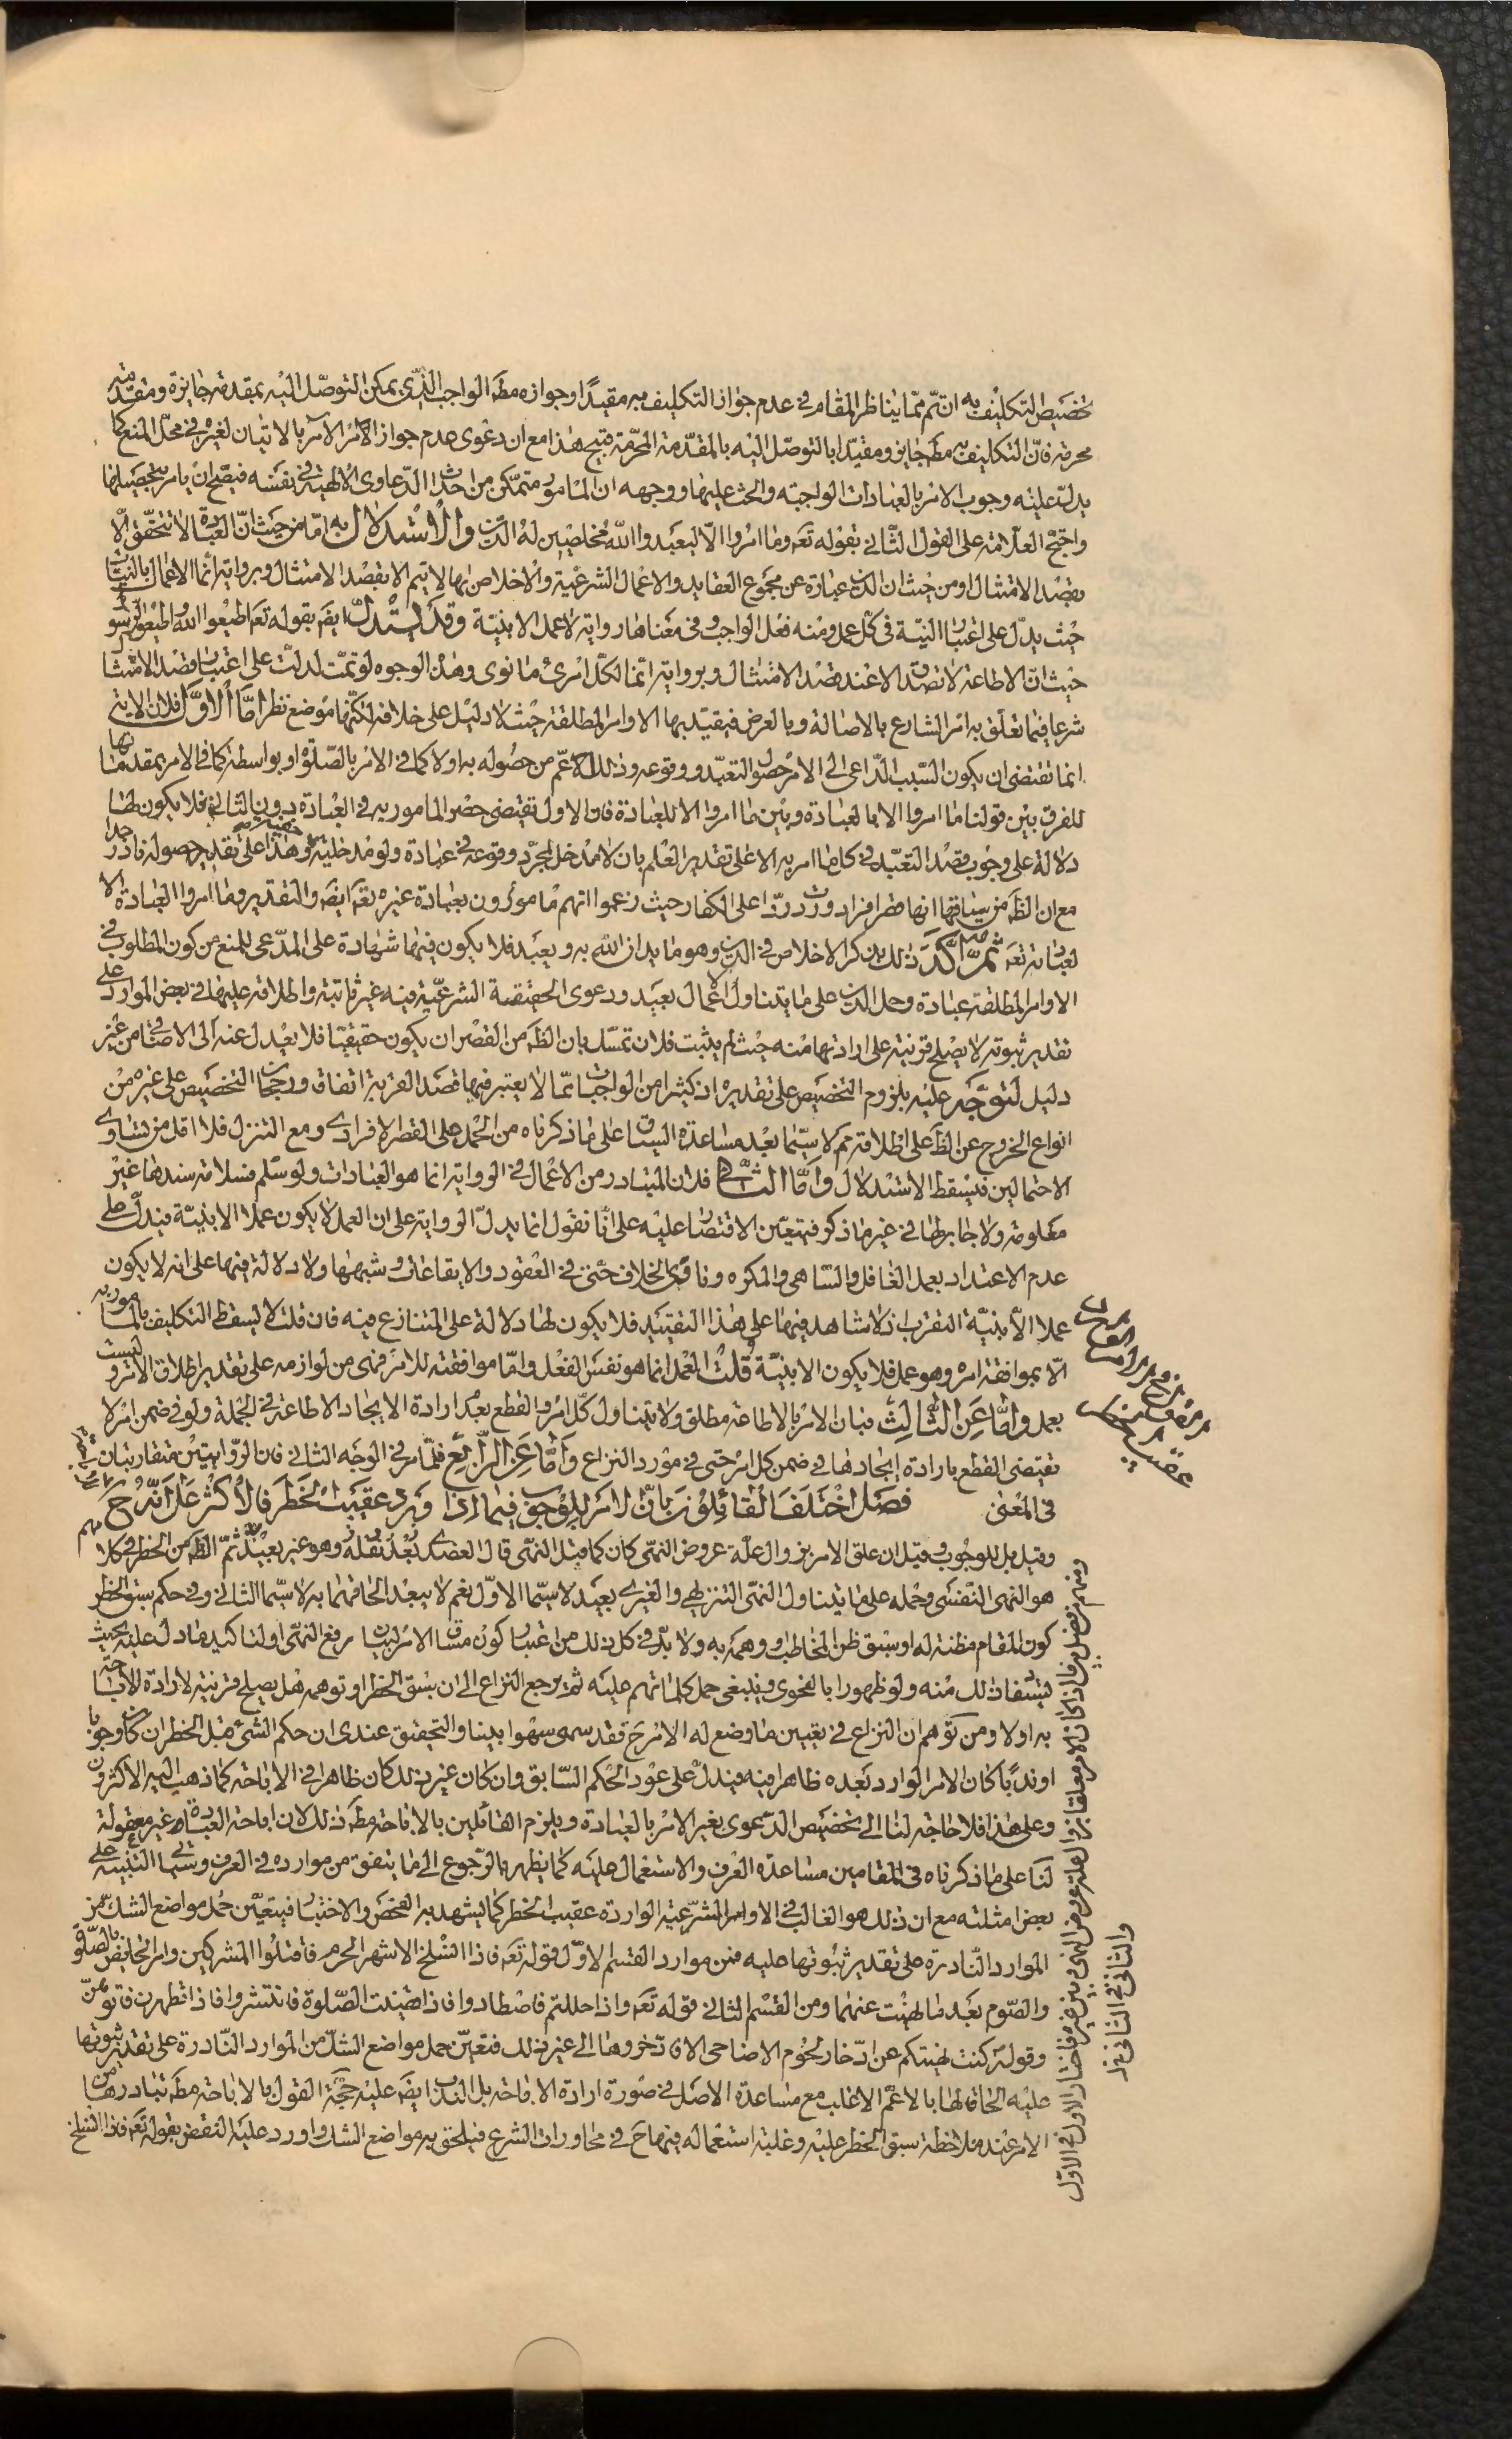 تخصيص التكليف به ان تم مما يناظر المقام في عدم جواز التكليف به مقيدا وجوازه مط الواجب الذي يمكن التوصل اليه بمقدمة جايزة ومقدمة
محرمة فان التكليف به مط جايز ومقيدا بالتوصل اليه بالمقدمة المحرمة قبيح هذا مع ان دعوى عدم جواز الامر الآمر بالاتيان لغيره في محل المنع كما
يدل عليه وجوب الامر بالعبادات الواجبة والحث عليها ووجهه ان المامور متمكن من احداث الدعاوى الالهية في نفسه فيصح ان يامر بتحصيلها
واحتج العلامة على القول الثاني بقوله تعه وما امروا الا ليعبدوا الله مخلصين له الدين والاستدلال به اما من حيث ان العبادة لا تتحقق الا
بقصد الامتثال او من حيث ان الدين عبارة عن مجموع العقايد والاعمال الشرعية والاخلاص بها لا يتم الا بقصد الامتثال وبرواية انما الاعمال بالنيات
حيث يدل على اعتبار النية في كل عمل ومنه فعل الواجب وفي معناها رواية لا عمل الا بنية وقد يستدل ايضه بقوله تعه اطيعوا الله واطيعوا الرسول
حيث ان الاطاعة لا تصدق الا عند قصد الامتثال وبرواية انما لكل امرئ ما نوى وهذه الوجوه لو تمت لدلت على اعتبار قصد الامتثال
شرعا فيما تعلق به امر الشارع بالاصالة وبالعرض فيقيد بها الاوامر المطلقة حيث لا دليل على خلافه لكنها موضع نظر اما الاول فلان الاية
انما تقتضي ان يكون السبب الداعي الى الامر حصول التعبد ووقوعه وذلك لاعم من حصوله به اولا كما في الامر بالصلوة او بواسطة كما في الامر بمقدماتها
للفرق بين قولنا ما امروا الا بالعبادة وبين ما امروا الا للعبادة فان الاول يقتضي حصر المامور به في العبادة دون الثاني فلا يكون لها
دلالة على وجوب قصد التعبد في كل ما امر به الا على تقدير العلم بان لا مدخل لمجرد وقوعه في عبادة ولو مدخلية وهذا على تقدير حصوله نادر جدا
مع ان الظ من سياقها انها قصر افراد وردت ردا على الكفار حيث زعموا انهم مامورون بعبادة غيره تعه ايضه والتقدير وما امروا بالعبادة الا
لعبادته تعه ثم اكد ذلك بذكر الاخلاص في الدين وهو ما يدان الله به ويعبد فلا يكون فيها شهادة على المدعى للمنع من كون المطلوب في
الاوامر المطلقة عبادة وحمل الدين على ما يتناول الاعمال بعيد ودعوى الحقيقة الشرعية فيه غير ثابتة واطلاقه عليها في بعض الموارد على
تقدير ثبوته لا يصلح قرينة على ارادتها منه حيث لم يثبت فلان تمسك بان الظ من القصر ان يكون حقيقيا فلا يعدل عنه الى الاضافي من غير
دليل لتوجه عليه بلزوم التخصيص على تقديره اذ كثيرا من الواجبات مما لا يعتبر فيها قصد القربة اتفاقا ورجحان التخصيص على غيره من
انواع الخروج عن الظ على اطلاقه مم لا سيما بعد مساعدة السياق على ما ذكرناه من الحمل على القصر الافرادي ومع التنزل فلا اقل من تساوي
الاحتمالين فيسقط الاستدلال واما الثاني فلان المتبادر من الاعمال في الرواية انما هو العبادات ولو سلم فسلامة سندها غير
معلومة ولا جابر لها في غير ما ذكر فيتعين الاقتصار عليه على انا نقول انما يدل الرواية على ان العمل لا يكون عملا الا بنية فيدل على
عدم الاعتداد بعمل الغافل والساهي والمكره ونافى الخلاف حتى في العقود والايقاعات وشبهها ولا دلالة فيها على انه لا يكون
عملا الا بنية التقرب اذ لا شاهد فيها على هذا التقييد فلا يكون لها دلالة على المتنازع فيه فان قلت لا يسقط التكليف بالمامور به
الا بموافقة امره وهو عمل فلا يكون الا بنية قلت العمل انما هو نفس الفعل واما موافقته للامر فهي من لوازمه على تقدير اطلاق الامر وليست
بعمل واما عن الثالث فبان الامر بالاطاعة مطلق ولا يتناول كل امر والقطع بعدم ارادة الا ايجاد الاطاعة في الجملة ولو في ضمن امر لا
يقتضي القطع بارادة ايجادها في ضمن كل امر حتى في مورد النزاع واما عن الرابع فلما مر في الوجه الثاني فان الروايتين متقاربتان
في المعنى فصل اختلف القائلون بان الامر للوجوب فيما اذا ورد عقيب الحظر فالاكثر على انه ح
وقيل بل للوجوب وقيل ان علق الامر بزوال علة عروض النهي كان كما قبل النهي قال العضدي بعد نقله وهو غير بعيد ثم الظ من الحظر في كلامهم
هو النهي النفسي وحمله على ما يتناول النهي التنزيهي والغيري بعيد لا سيما الاول نعم لا يبعد الحاقهما به لا سيما الثاني وفي حكم سبق الحظر
كون المقام مظنة له او سبق ظن المخاطب او وهمه به ولا بد في كل ذلك من اعتبار كون مساق الامر لبيان رفع النهي او لتاكيد ما دل عليه بحيث
يستفاد ذلك منه ولو ظهورا بالفحوى وينبغي حمل كلماتهم عليه ثم يرجع النزاع الى ان سبق الحظر او توهمه هل يصلح قرينة لارادة الاباحة
به اولا ومن توهم ان النزاع في تعيين ما وضع له الامر ح فقد سهى سهوا بينا والتحقيق عندي ان حكم الشئ قبل الحظر ان كان وجوبا
او ندبا كان الامر الوارد بعده ظاهرا فيه فيدل على عود الحكم السابق وان كان غير ذلك كان ظاهرا في الاباحة كما ذهب اليه الاكثرون
وعلى هذا فلا حاجة لنا الى تخصيص الدعوى بغير الامر بالعبادة ويلزم القائلين بالاباحة مط ذلك لان اباحة العبادة غير معقولة
لنا على ما ذكرناه في المقامين مساعدة العرف والاستعمال عليه كما يظهر بالرجوع الى ما يتفق من موارده في العرف وسياتي التنبيه على
بعض امثلته مع ان ذلك هو الغالب في الاوامر الشرعية الواردة عقيب الحظر كما يشهد به الفحص والاختبار فيتعين حمل مواضع الشك من
الموارد النادرة على تقدير ثبوتها عليه فمن موارد القسم الاول قوله تعه فاذا انسلخ الاشهر الحرم فاقتلوا المشركين وامر الحائض بالصلوة
والصوم بعد ما نهيت عنهما ومن القسم الثاني قوله تعه واذا حللتم فاصطادوا فاذا قضيت الصلوة فانتشروا فاذا تطهرن فاتوهن
وقوله كنت نهيتكم عن ادخار لحوم الاضاحي الا فادخروها الى غير ذلك فتعين حمل مواضع الشك من الموارد النادرة على تقدير ثبوتها
عليه الحاقا لها بالاعم الاغلب مع مساعدة الاصل في صورة ارادة الاباحة بل الندب ايضه عليه حجة القول بالاباحة مط تبادرها من
الامر عند ملاحظة سبق الحظر عليه وغلبة استعماله فيها ح في محاورات الشرع فيلحق به مواضع الشك واورد عليه النقض بقوله تعه فاذا انسلخ
ومنهم من فصل بين ما اذا كان الامر معلقا بزوال علة عروض النهي وبين غيره فاختار الاول في الاول
والثاني في الثاني